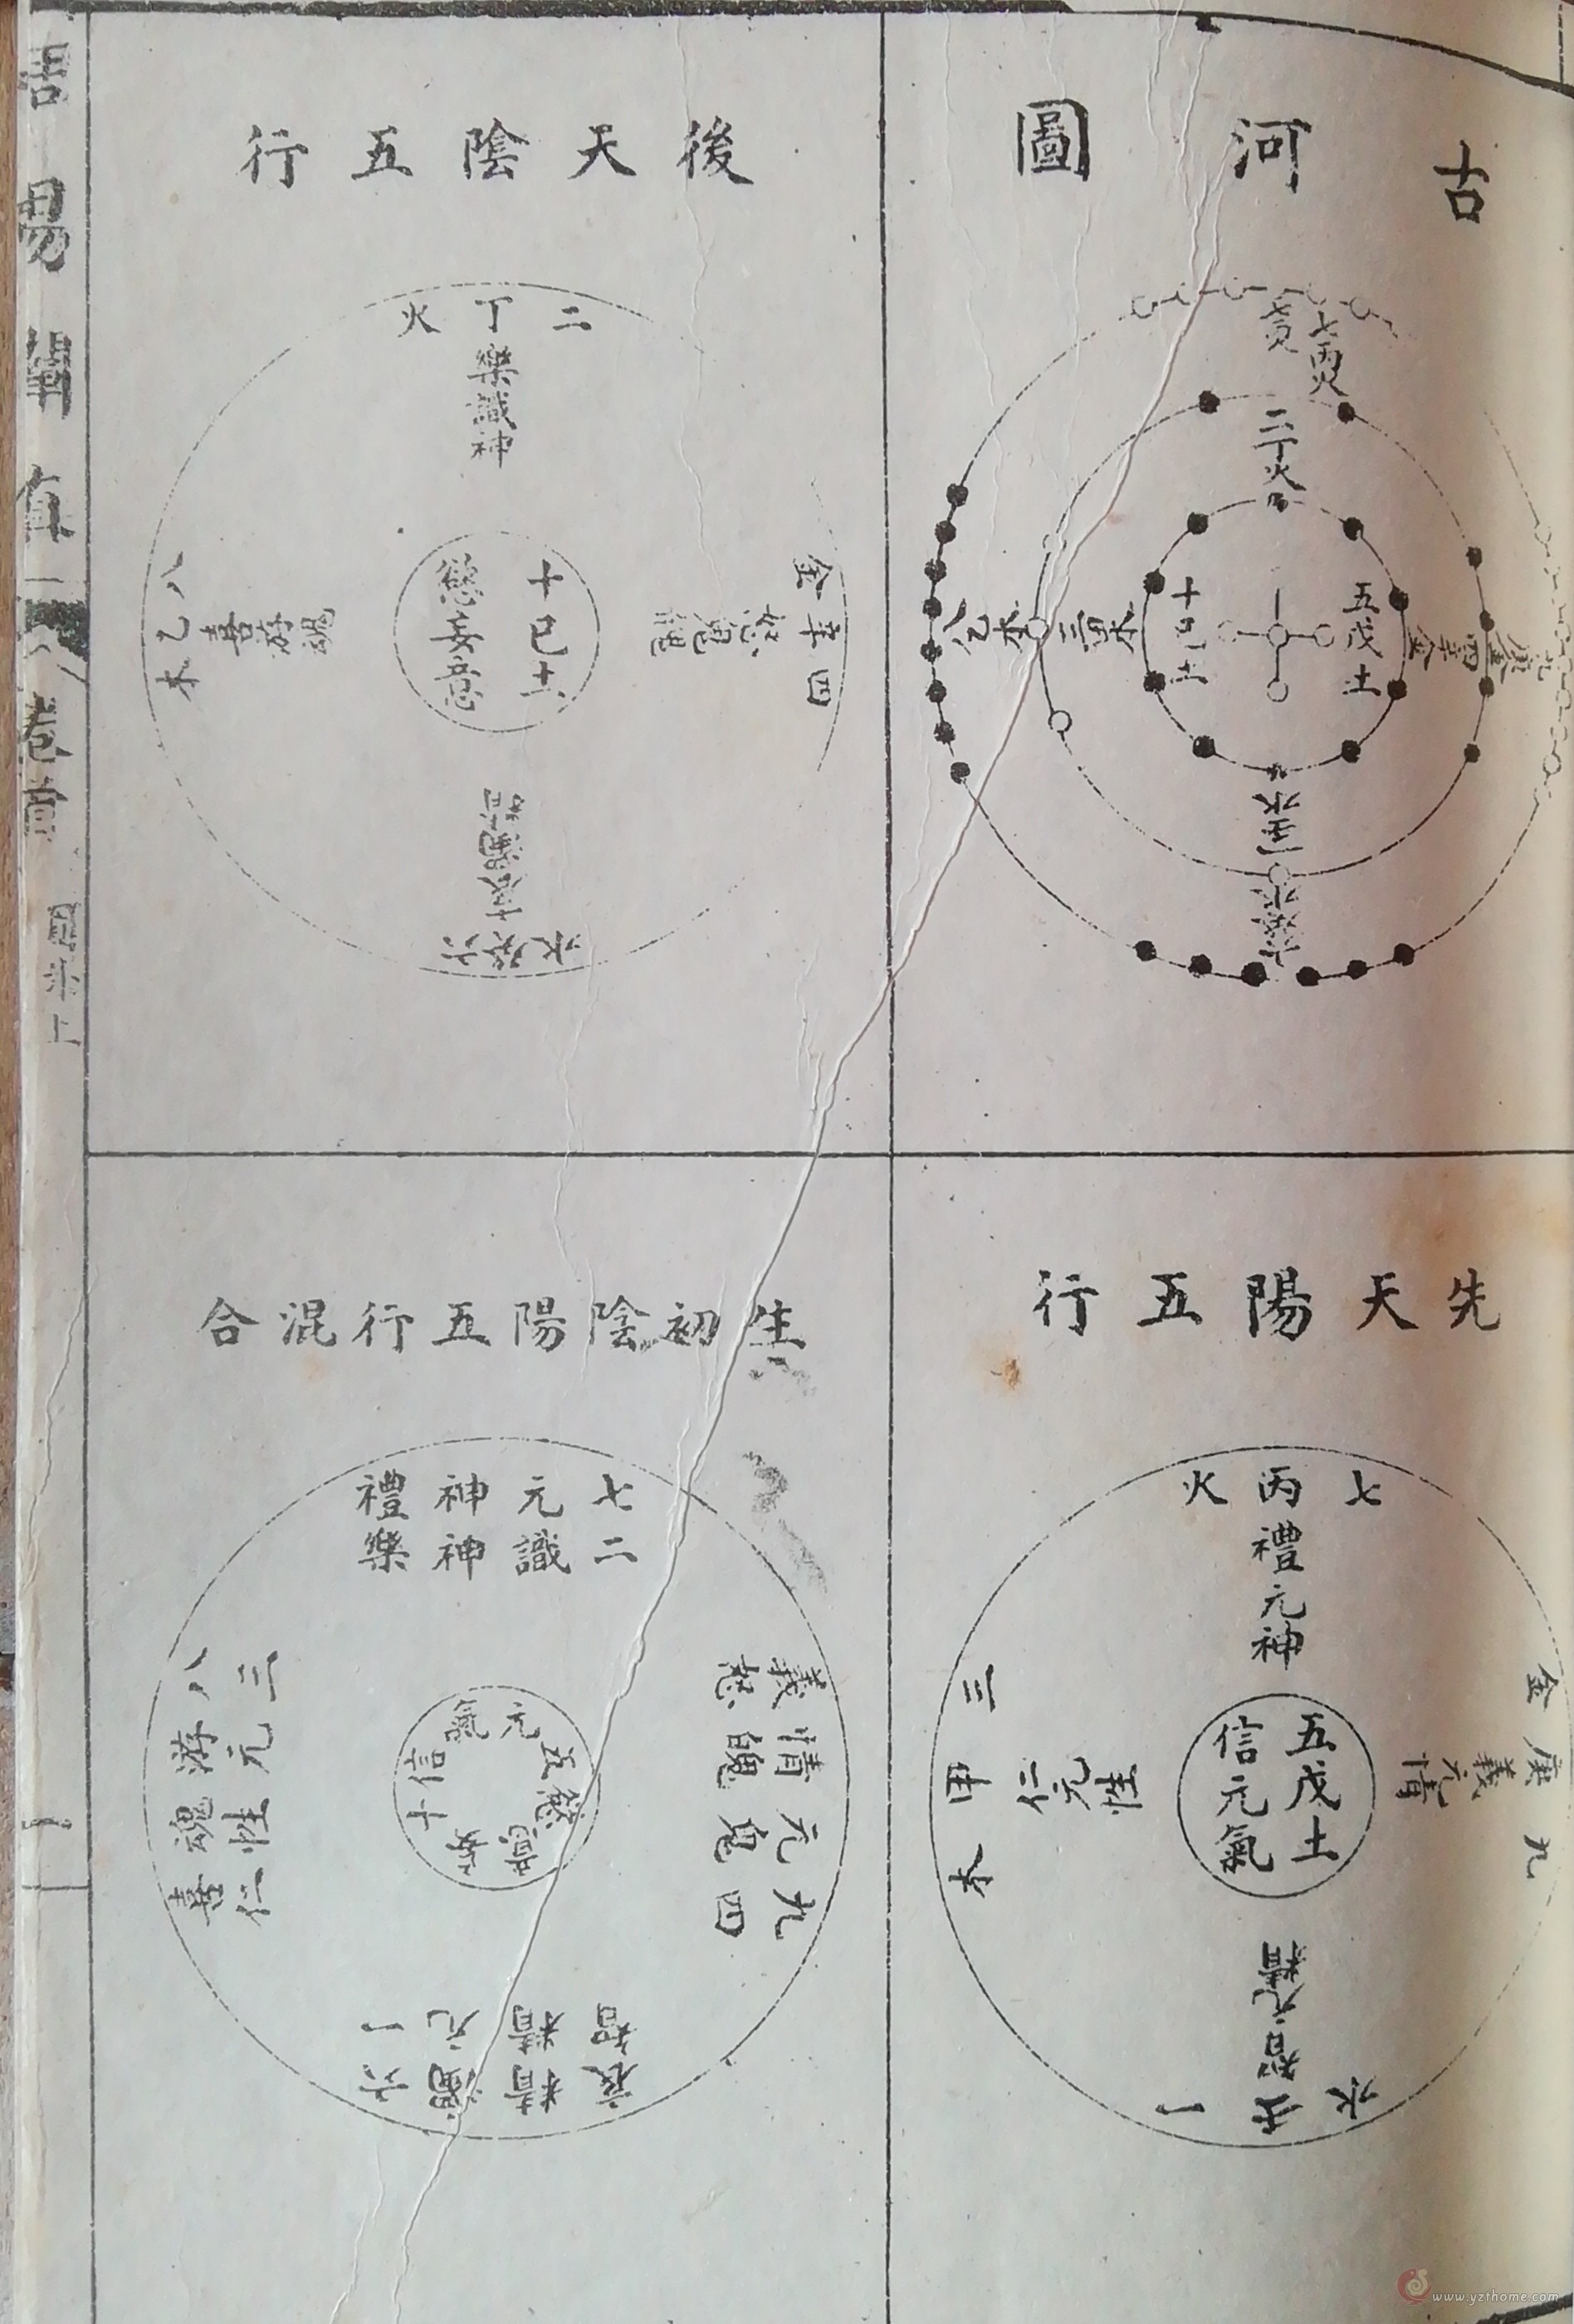 古河圖
七丙火
二丁火
八乙木
三甲木
十己土
五戊土
四辛金
一壬水
六癸水
先天陽五行
七丙火
禮元神
三甲木
仁元性
五戊土
信元氣
金庚九
義元情
一壬水
智元精
後天陰五行
二丁火
樂識神
八乙木
喜游魂
十己土
慾妄意
金辛四
六癸水
生初陰陽五行混合
七元神禮
二識神樂
三元性仁
八游魂喜
元氣
十信
九元情義
四鬼魄怒
一元精智
六濁精哀
周易闡真
卷首
www.yzthome.com